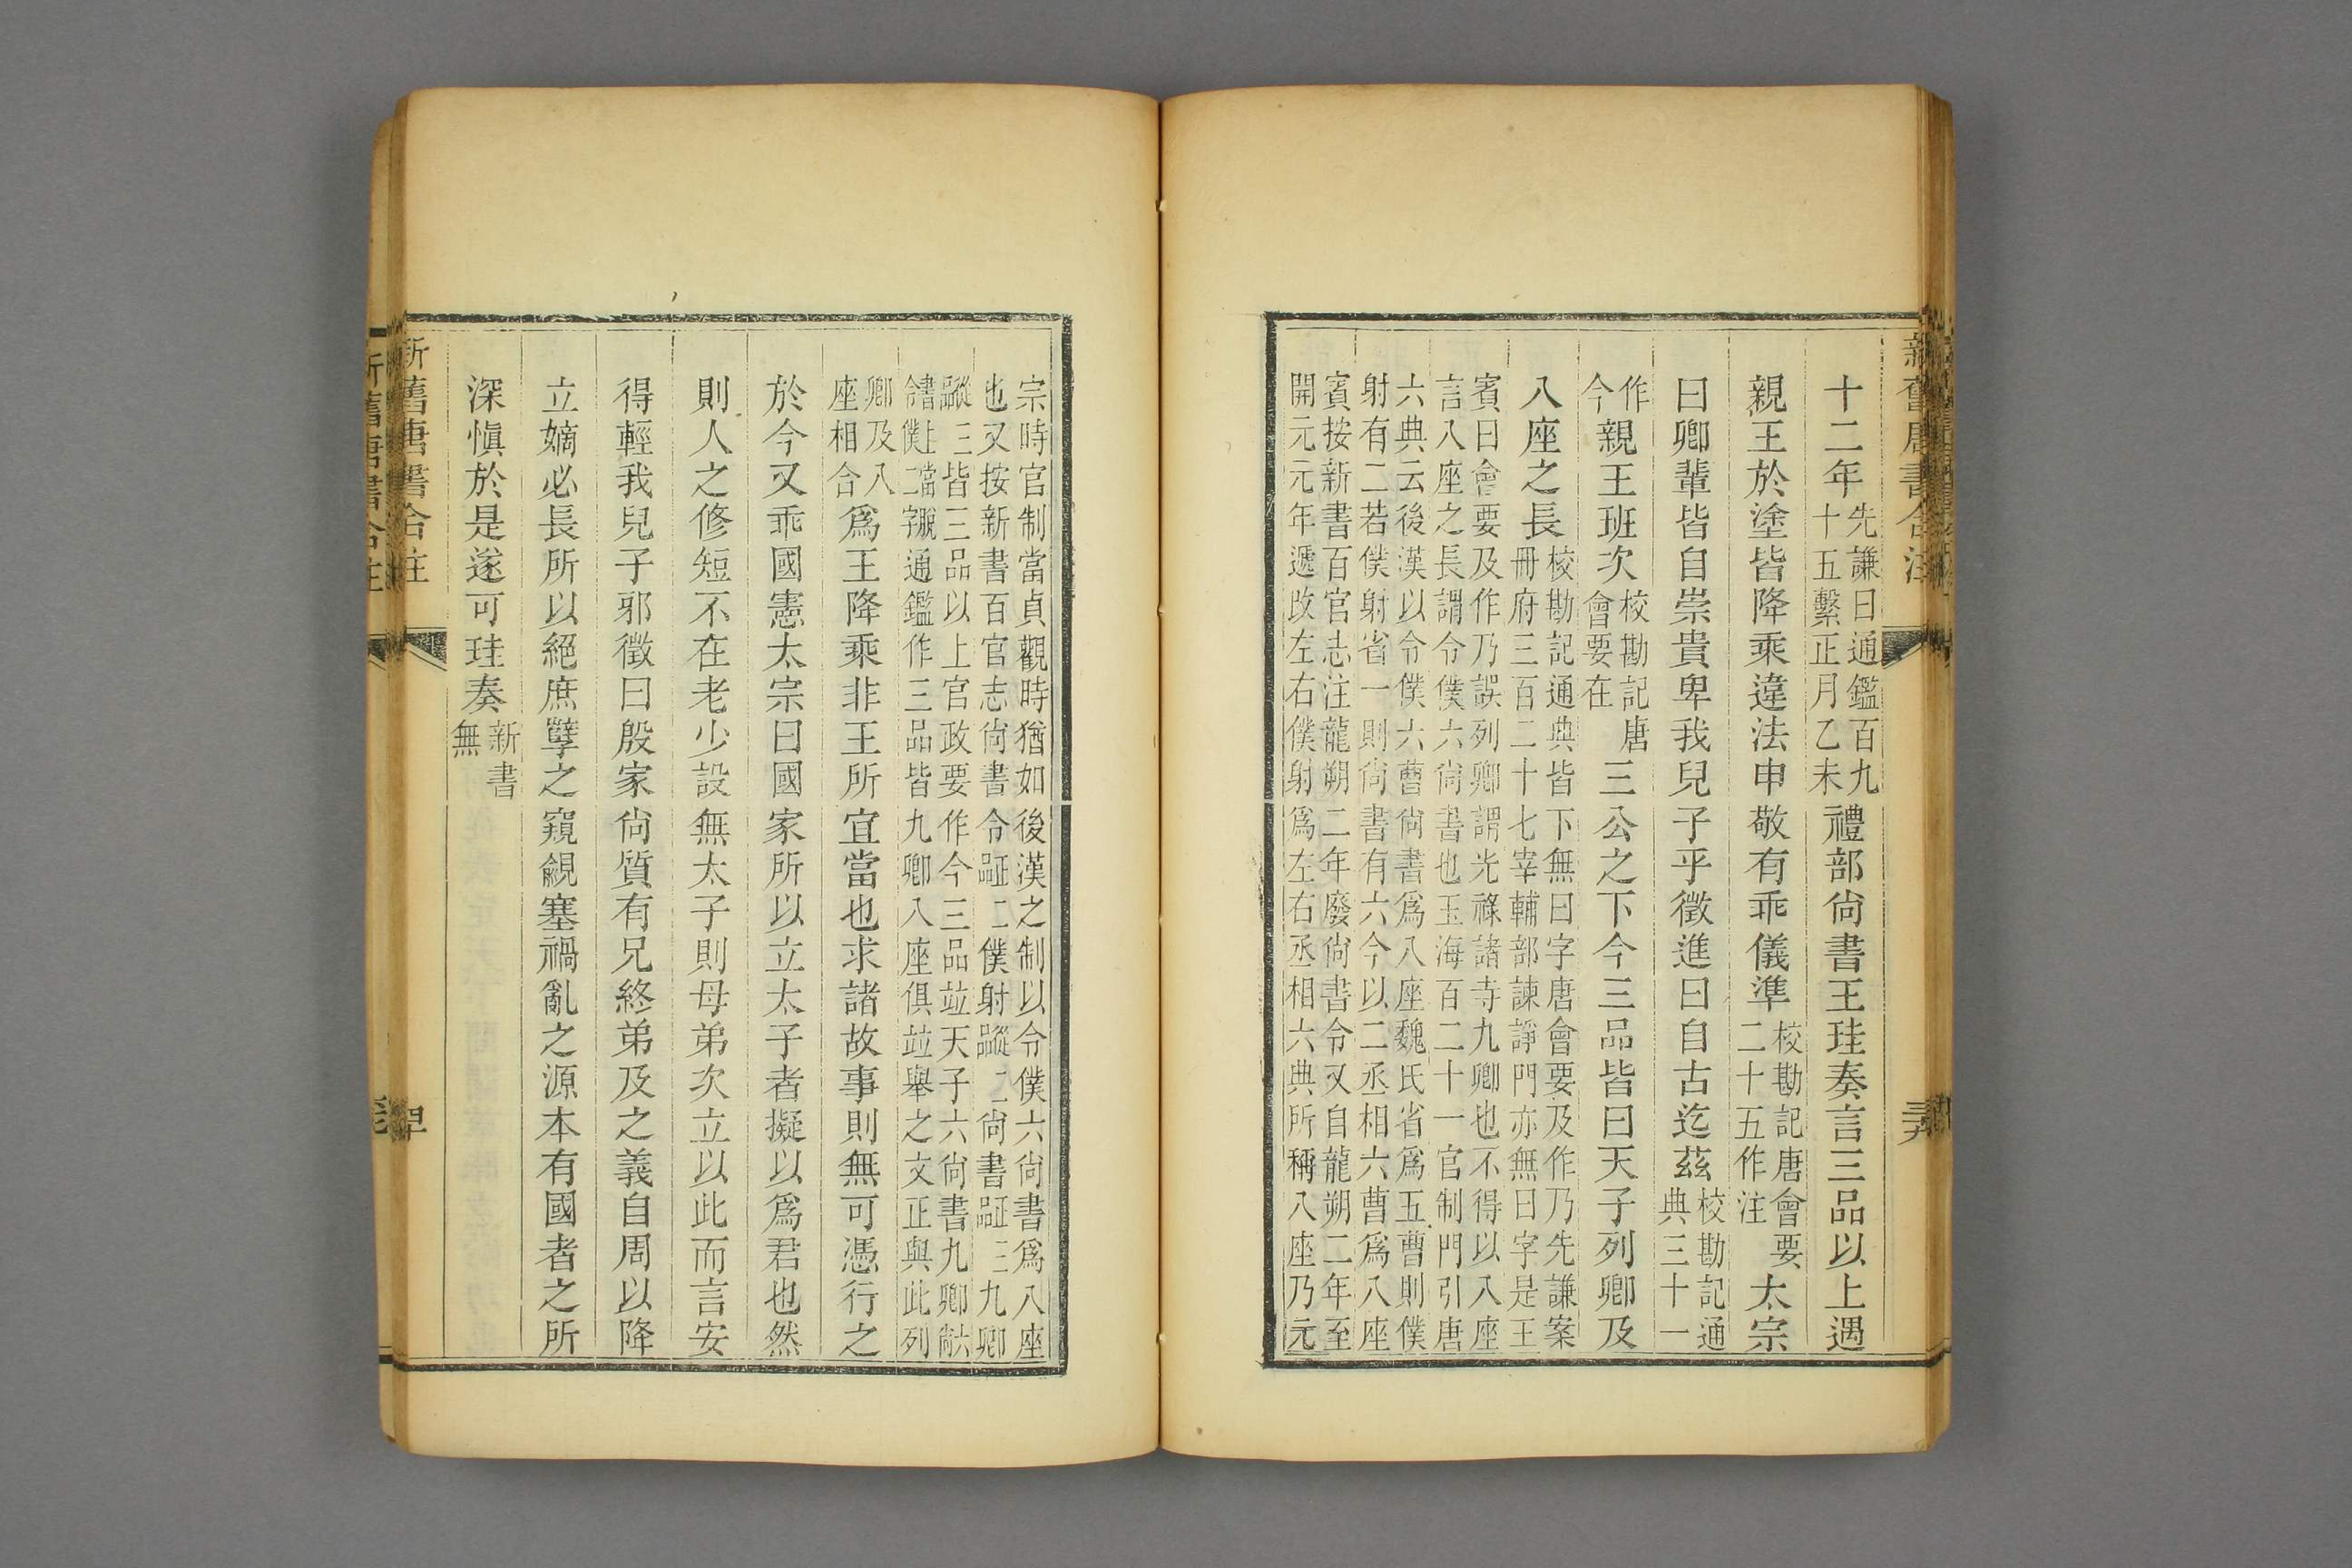 十二年先謙曰通鑑百九十五繫正月乙未禮部尙書王珪奏言三品以上遇
親王於塗皆降乘違法申敬有乖儀準校勘記唐會要二十五作注太宗
曰卿輩皆自崇貴卑我兒子乎徵進曰自古迄茲校勘記通典三十一
作今親王班次校勘記唐會要在三公之下今三品皆曰天子列卿及
八座之長校勘記通典皆下無曰字唐會要及作乃先謙案冊府三百二十七宰輔部諫諍門亦無曰字是王
賓曰會要及作乃誤列卿謂光祿諸寺九卿也不得以八座言八座之長謂令僕六尙書也玉海百二十一官制門引唐
六典云後漢以令僕六曹尙書爲八座魏氏省爲五曹則僕射有二若僕射省一則尙書有六今以二丞相六曹爲八座
賓按新書百官志注龍朔二年廢尙書令又自龍朔二年至開元元年遞改左右僕射爲左右丞相六典所稱八座乃元
宗時官制當貞觀時猶如後漢之制以令僕六尙書爲八座也又按新書百官志尙書令正二僕射從二尙書正三九卿
從三皆三品以上官政要作今三品竝天子六尙書九卿六尙書上當脫令二僕字通鑑作三品皆九卿八座俱竝舉之文正與此列
卿及八座相合爲王降乘非王所宜當也求諸故事則無可憑行之
於今又乖國憲太宗曰國家所以立太子者擬以爲君也然
則人之修短不在老少設無太子則母弟次立以此而言安
得輕我兒子邪徵曰殷家尙質有兄終弟及之義自周以降
立嫡必長所以絕庶孽之窺覦塞禍亂之源本有國者之所
深愼於是遂可珪奏新書無
新舊唐書合注